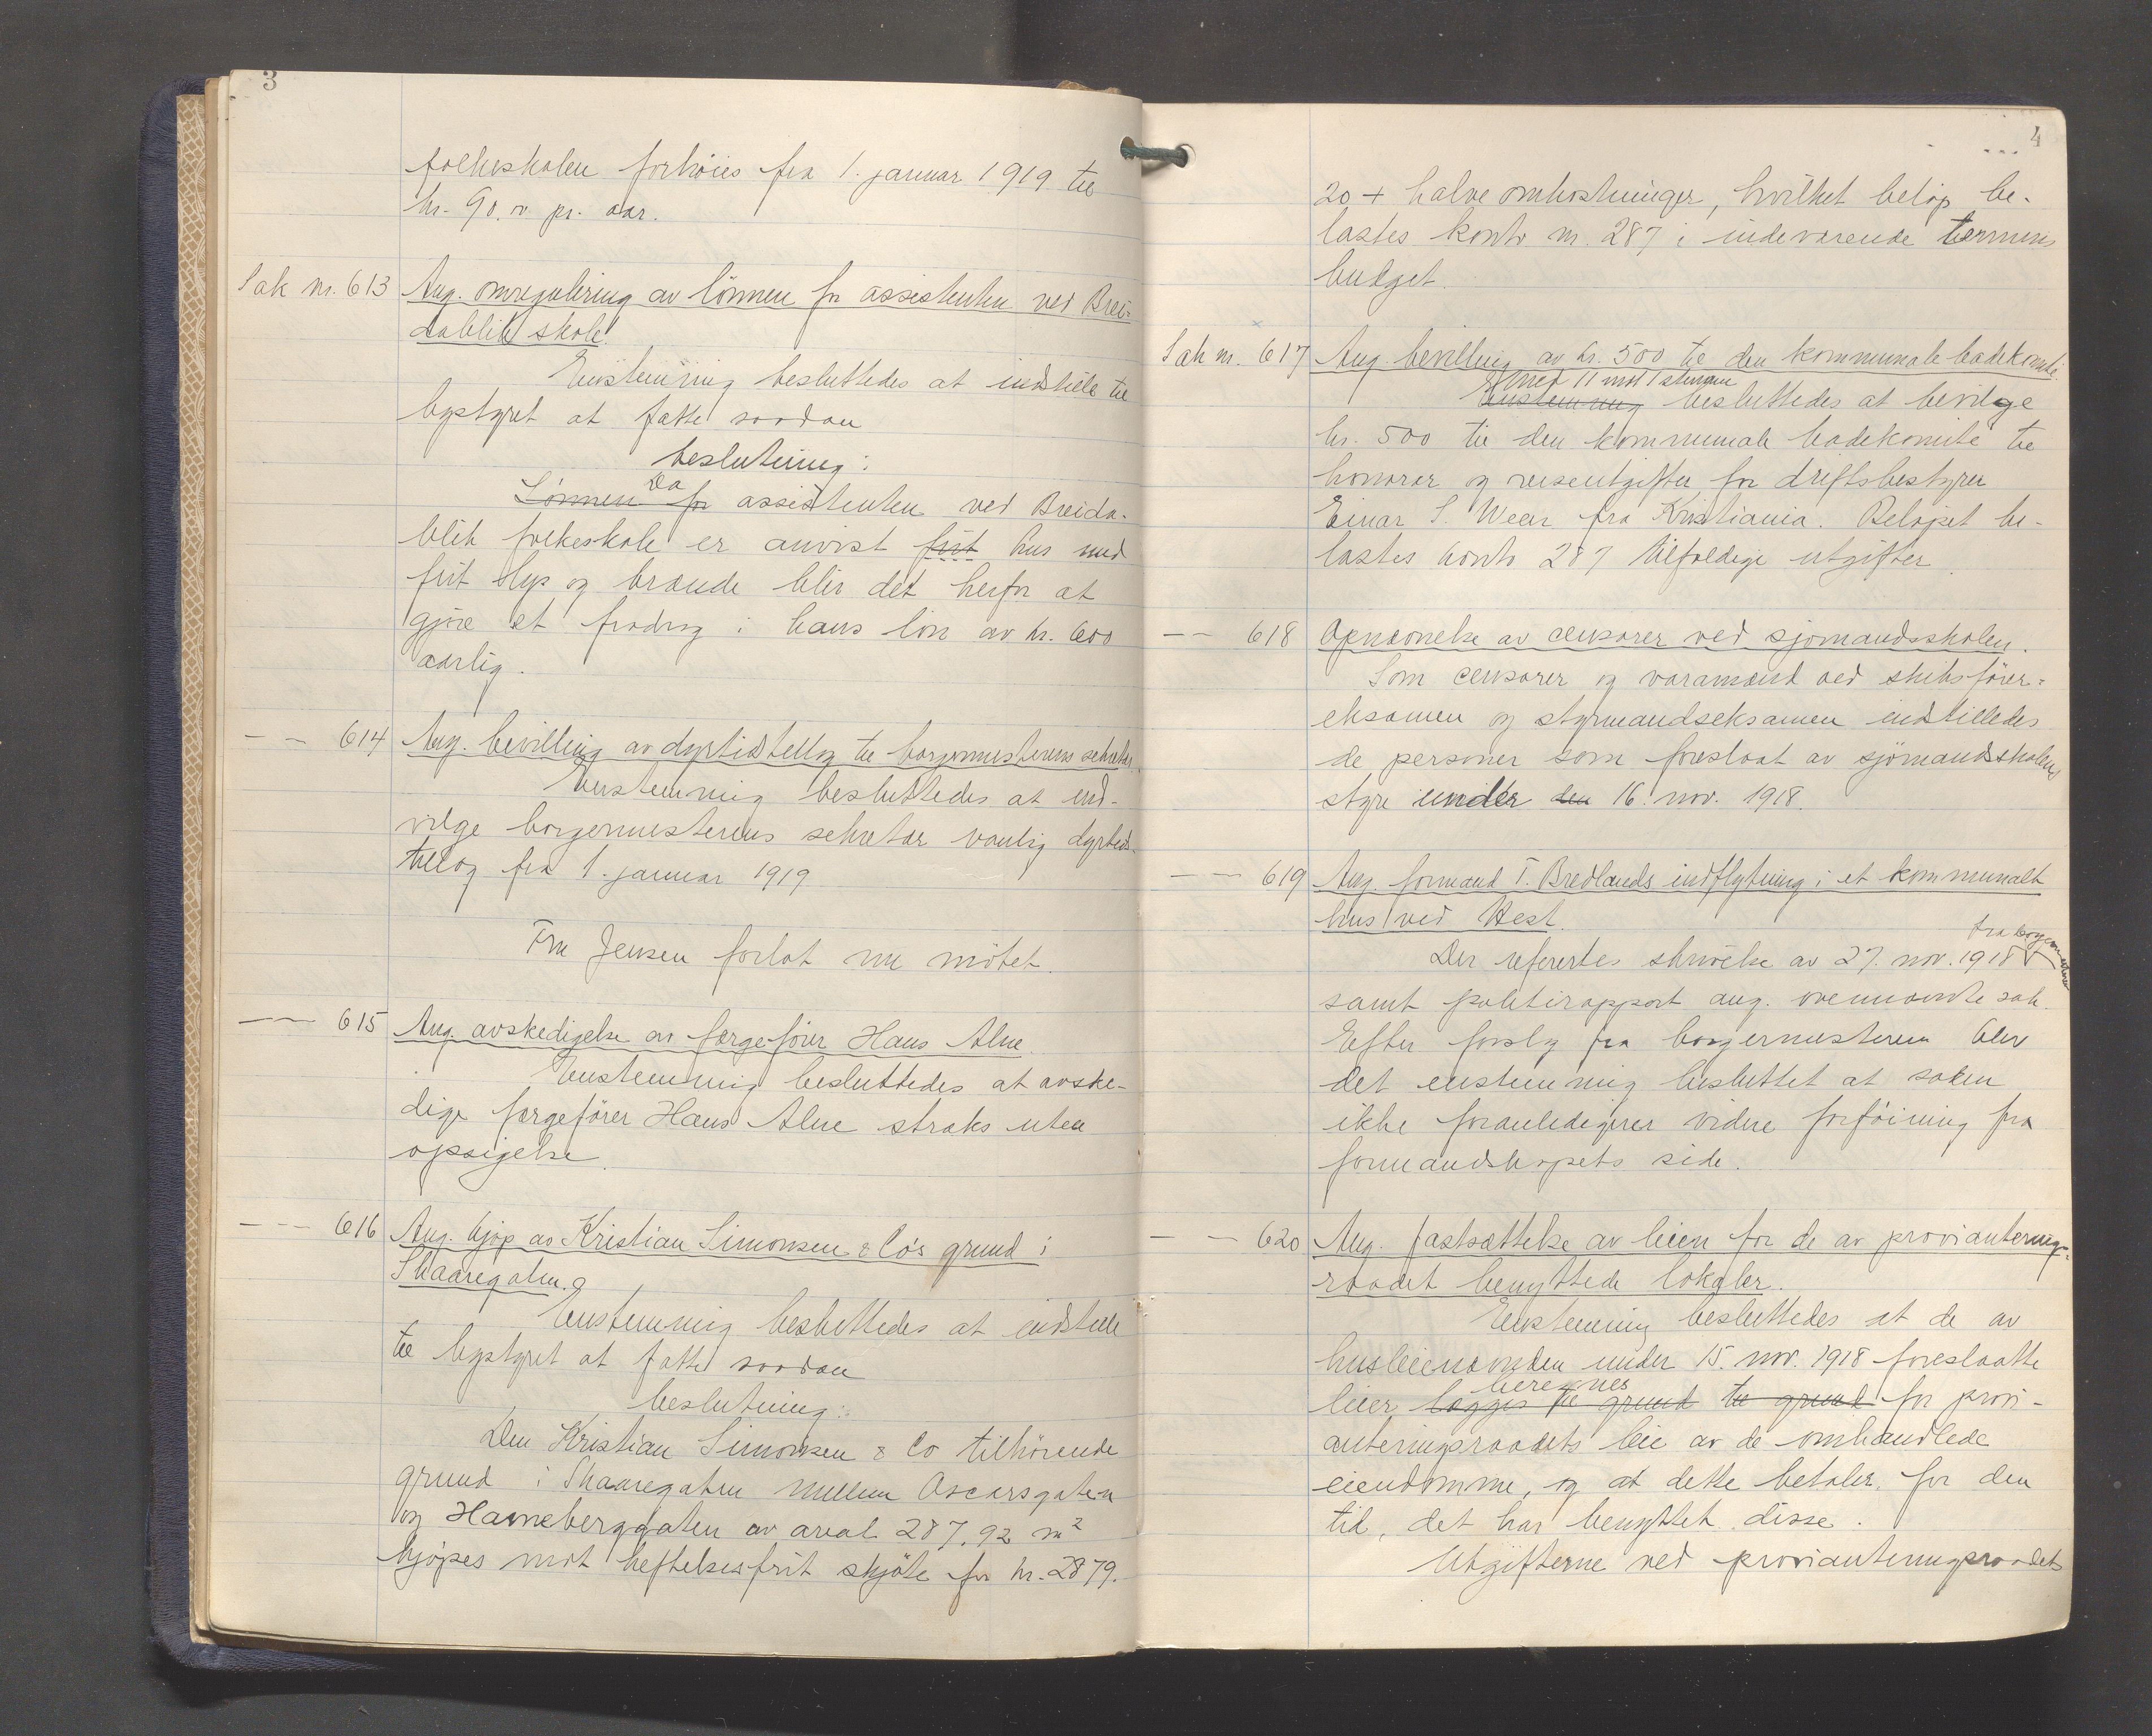 3
folkeskolen forhöies fra 1. januar 1919 til
kr. 90.00 pr. aar.
Sak nr. 613 Ang. omregulering av lönnen for assistenten ved Brei-
dablik skole.
Enstemmig besluttedes at indstille til
bystyret at fatte saadan
beslutning:
Da
Lönnen for assistenten ved Breida-
blik folkeskole er anvist frit hus med
frit lys og brænde blir det herfor at
gjöre et fradrag i hans lön av kr. 600
aarlig.
— — 614 Ang. bevilling av dyrtidstillæg til borgermesterens sekretær.
Enstemmig besluttedes at ind-
vilge borgermesterens sekretær vanlig dyrtids-
tillæg fra 1. januar 1919
Fru Jensen forlot nu mötet.
— — 615 Ang. avskedigelse av færgeförer Hans Alne.
Enstemmig besluttedes at avske-
dige færgeförer Hans Alne straks uten
opsigelse.
— — 616 Ang. kjöp av Kristian Simonsen & Co's grund i
Skaaregaten.
Enstemmig besluttedes at indstille
til bystyret at fatte saadan
beslutning:
Den Kristian Simonsen & Co tilhörende
grund i Skaaregaten mellem Oscarsgaten
og Havneberggaten av areal 287,92 m²
kjöpes mot heftelsesfrit skjöte for kr. 2879.
4
20 + halve omkostninger, hvilket belöp be-
lastes konto nr. 287 i indeværende termins
budget.
Sak nr. 617 Ang. bevilling av kr. 500 til den kommunale badekomité.
med 11 mot 1 stemme
Enstemmig besluttedes at bevilge
kr. 500 til den kommunale badekomité til
honorar og reiseutgifter for driftsbestyrer
Einar S. Weear fra Kristiania. Belöpet be-
lastes konto 287 tilfældige utgifter.
— — 618 Opnævnelse av censorer ved sjömandsskolen.
Som censorer og varamænd ved skibsförer-
eksamen og styrmandseksamen indstilledes
de personer som foreslaat av sjömandsskolens
styre under den 16. nov. 1918.
— — 619 Ang. formand T. Bredlands indflytning i et kommunalt
hus ved Vest.
fra borgermesteren
Der refereres skrivelse av 27. nov. 1918
samt politirapport ang. ovennævnte sak.
Efter forslag fra borgermesteren blev
det enstemmig besluttet at saken
ikke foranlediger videre forföining fra
formandskapets side.
— — 620 Ang. fastsættelse av leien for de av provianterings-
raadet benyttede lokaler.
Enstemmig besluttedes at de av
husleienævnden under 15. nov. 1918 foreslaatte
beregnes
leier lægges til grund til grund for provi-
anteringsraadets leie av de omhandlede
eiendomme, og at dette betaler for den
tid, det har benyttet disse.
Utgifterne ved provianteringsraadets